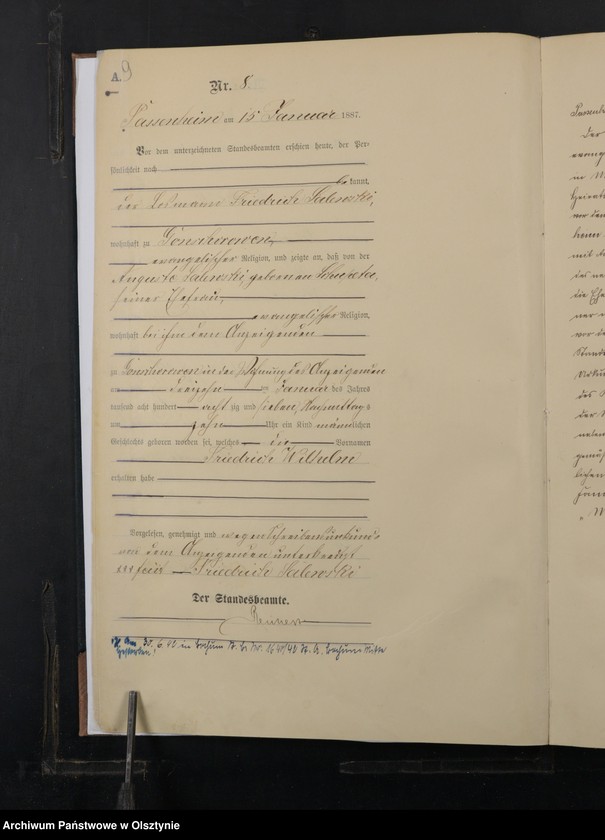 A. 9
Nr. 8.
Passenheim am 15 Januar 1887.
Vor dem unterzeichneten Standesbeamten erschien heute, der Per-
sönlichkeit nach
be kannt,
der Losmann Friedrich Salewski,
wohnhaft zu Gonschorowen,
evangelischer Religion, und zeigte an, daß von der
Auguste Salewski, geborenen
seiner Ehefrau,
evangelischer Religion,
wohnhaft bei ihm dem Anzeigenden
zu Gonschorowen in der Wohnung des Anzeigenden
am dreizehn ten Januar des Jahres
tausend acht hundert acht zig und sieben, Nachmittags
um zehn Uhr ein Kind männlichen
Geschlechts geboren worden sei, welches die Vornamen
Friedrich Wilhelm
erhalten habe
Vorgelesen, genehmigt und wegen Schreibensunkunde
von dem Anzeigenden unterkreuzt
+++ Friedrich Salewski
Der Standesbeamte.
30.6.40 in Bochum St. A. Bochum Mitte
gestorben!
Passenh
der
evang
in
vor den
die Ehe
vor d
Stand
des
der
gemä
Archiwum Państwowe w Olsztynie